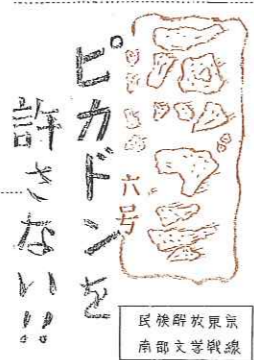 石ツブテ
六号
ピカドンを
許さない!!
民族解放東京
南部文学戦線